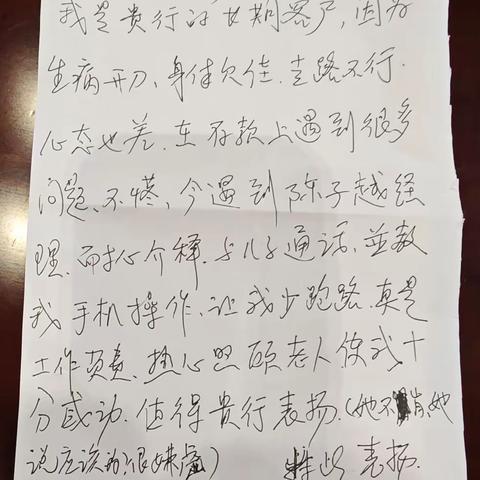 我是贵行的长期客户,因为
生病开刀、身体欠佳.走路不行.
心态也差.在存款上遇到很多
问题、不懂、今遇到陈子越经
理.耐心介释.与儿子通话,并教
我手机操作、让我少跑路.真是
工作负责.热心照顾老人使我十
分感动.值得贵行表扬.(她不肯,她
说应该的很谦虚) 特此表扬.